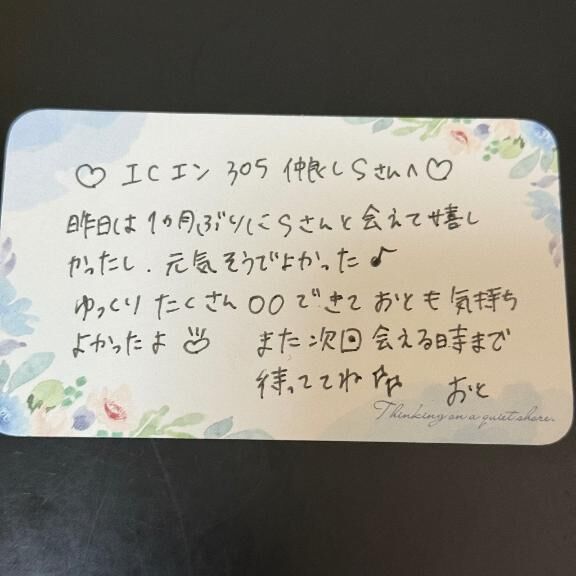 ♡ エCエン 305 仲良しSさんへ♡
昨日は1ヵ月ぶりにSさんと会えて嬉し
かったし、元気そうでよかった♪
ゆっくりたくさん〇〇できておとも気持ち
よかったよ また次回会える時まで
待っててね おと
Thinking on a quiet shore.